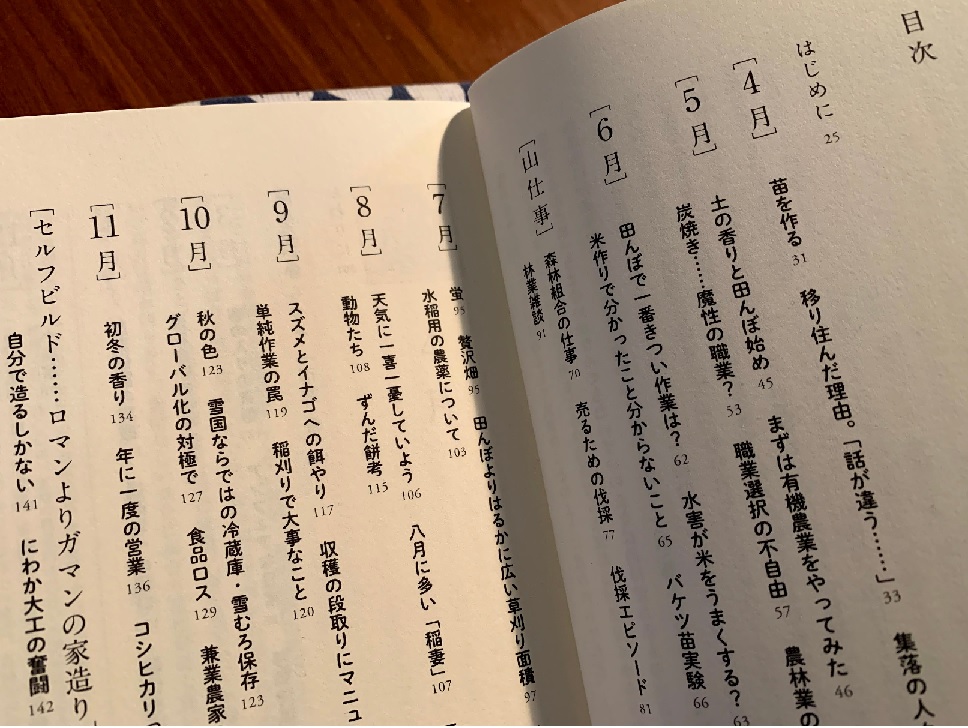 目次
はじめに 25
[4月]
苗を作る 31 移り住んだ理由。「話が違う……」 33 集落の人
土の香りと田んぼ始め 45 まずは有機農業をやってみた 46
[5月]
炭焼き……魔性の職業? 53 職業選択の不自由 57 農林業の
[6月]
田んぼで一番きつい作業は? 62 水害が米をうまくする? 63
米作りで分かったこと分からないこと 65 バケツ苗実験 66
[山仕事]
森林組合の仕事 70 売るための伐採 77 伐採エピソード 81
林業雑談 91
[7月]
蛍 95 贅沢畑 95 田んぼよりはるかに広い草刈り面積 97
水稲用の農薬について 103
[8月]
天気に一喜一憂していよう 106 八月に多い「稲妻」 107
動物たち 108 ずんだ餅考 115
[9月]
スズメとイナゴへの餌やり 117 収穫の段取りにマニュ
単純作業の罠 119 稲刈りで大事なこと 120
[10月]
秋の色 123 雪国ならではの冷蔵庫・雪むろ保存 123
グローバル化の対極で 127 食品ロス 129 兼業農家
[11月]
初冬の香り 134 年に一度の営業 136 コシヒカリの
[セルフビルド……ロマンよりガマンの家造り]
自分で造るしかない 141 にわか大工の奮闘 142